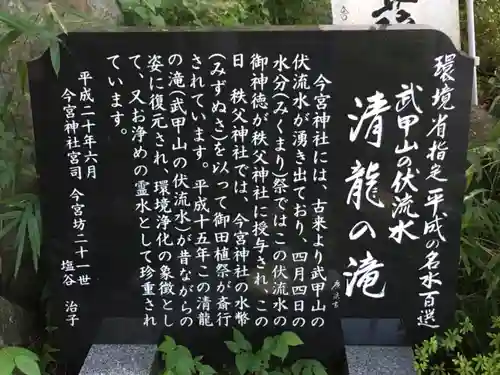 環境省指定 平成の名水百選
武甲山の伏流水
清龍の滝
今宮神社には、古来より武甲山の
伏流水が湧き出ており、四月四日の
水分(みくまり)祭ではこの伏流水の
御神徳が秩父神社に授与され、この
日 秩父神社では、今宮神社の水幣
(みずぬさ)を以って御田植祭が斎行
されています。平成十五年この清龍
の滝(武甲山の伏流水)が昔ながらの
姿に復元され、環境浄化の象徴とし
て、又お浄めの霊水として珍重され
ています。
平成二十年六月
今宮神社宮司 今宮坊二十一世
塩谷 治子